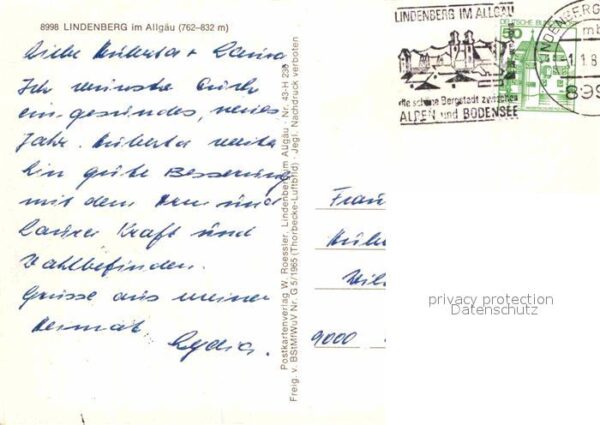 8998 LINDENBERG im Allgäu (762-832 m)
Liebe Huberta + Laura
Ich wünsche Euch
ein gesundes, neues
Jahr. Huberta weiter
hin gute Besserung
mit dem Arm und
Laura Kraft und
Wohlbefinden.
Grüsse aus meiner
Heimat
Lydia.
Postkartenverlag W. Roessler, Lindenberg im Allgäu · Nr. 43-H 236
Freig. v. BStMfWuV Nr. G 5/1965 (Thorbecke-Luftbild) · Jegl. Nachdruck verboten
LINDENBERG IM ALLGÄU
die schöne Bergstadt zwischen
ALPEN und BODENSEE
DEUTSCHE BUNDES
50
LINDENBERG
mb
1.1.8
899
Frau
9000
privacy protection
Datenschutz